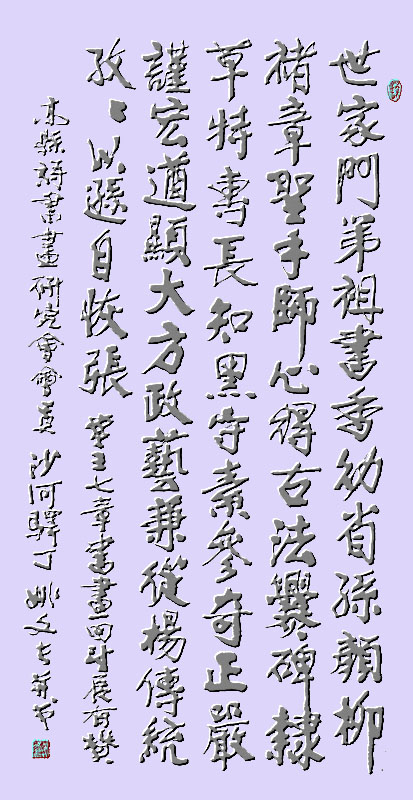 世家門弟祖書香幼省孫顏柳
褚章聖手師心得古法爨碑隸
草特專長知黑守素參奇正嚴
謹宏遒顯大方政藝兼從楊傳統
孜〻以遜自恢張 七章書畫回時展有贊
本縣詩書畫研究會會員 沙河驛丁 姚文